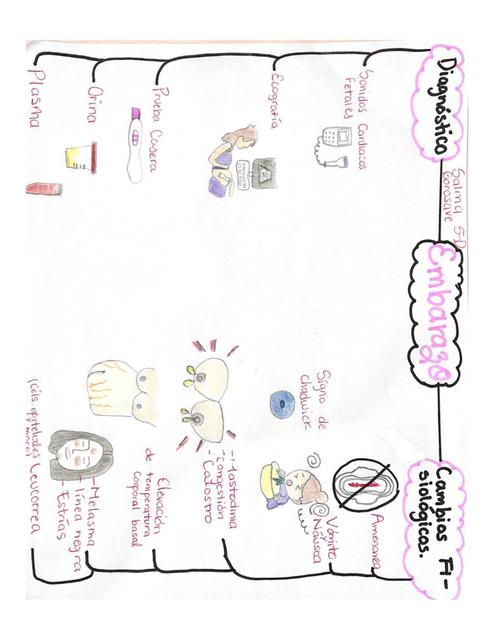 Salma 5-D
Gorosave
Embarazo
Diagnóstico
Sonidos Cardiacos
fetales
Ecografía
Prueba Casera
Orina
Plasma
Cambios Fi-
siológicos.
Amenorrea
Vómito
y
Náusea
Signo de
chadwick
-Mastodinia
-Congestión
-Calostro
Elevación
de temperatura
corporal basal
-Melasma
-línea negra
-Estrías
Leucorrea
(céls. epiteliales
y moco)